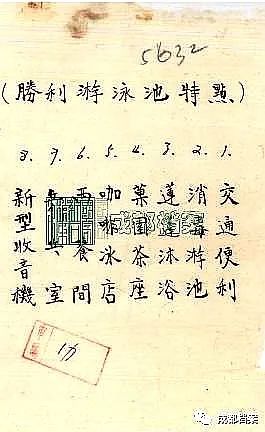 5632
(勝利游泳池特點)
1. 交通便利
2. 消毒游池
3. 蓮蓬沐浴
4. 菓園茶座
5. 咖啡冰店
6. 西餐間
7. 室
8. 新型收音機
成都档案